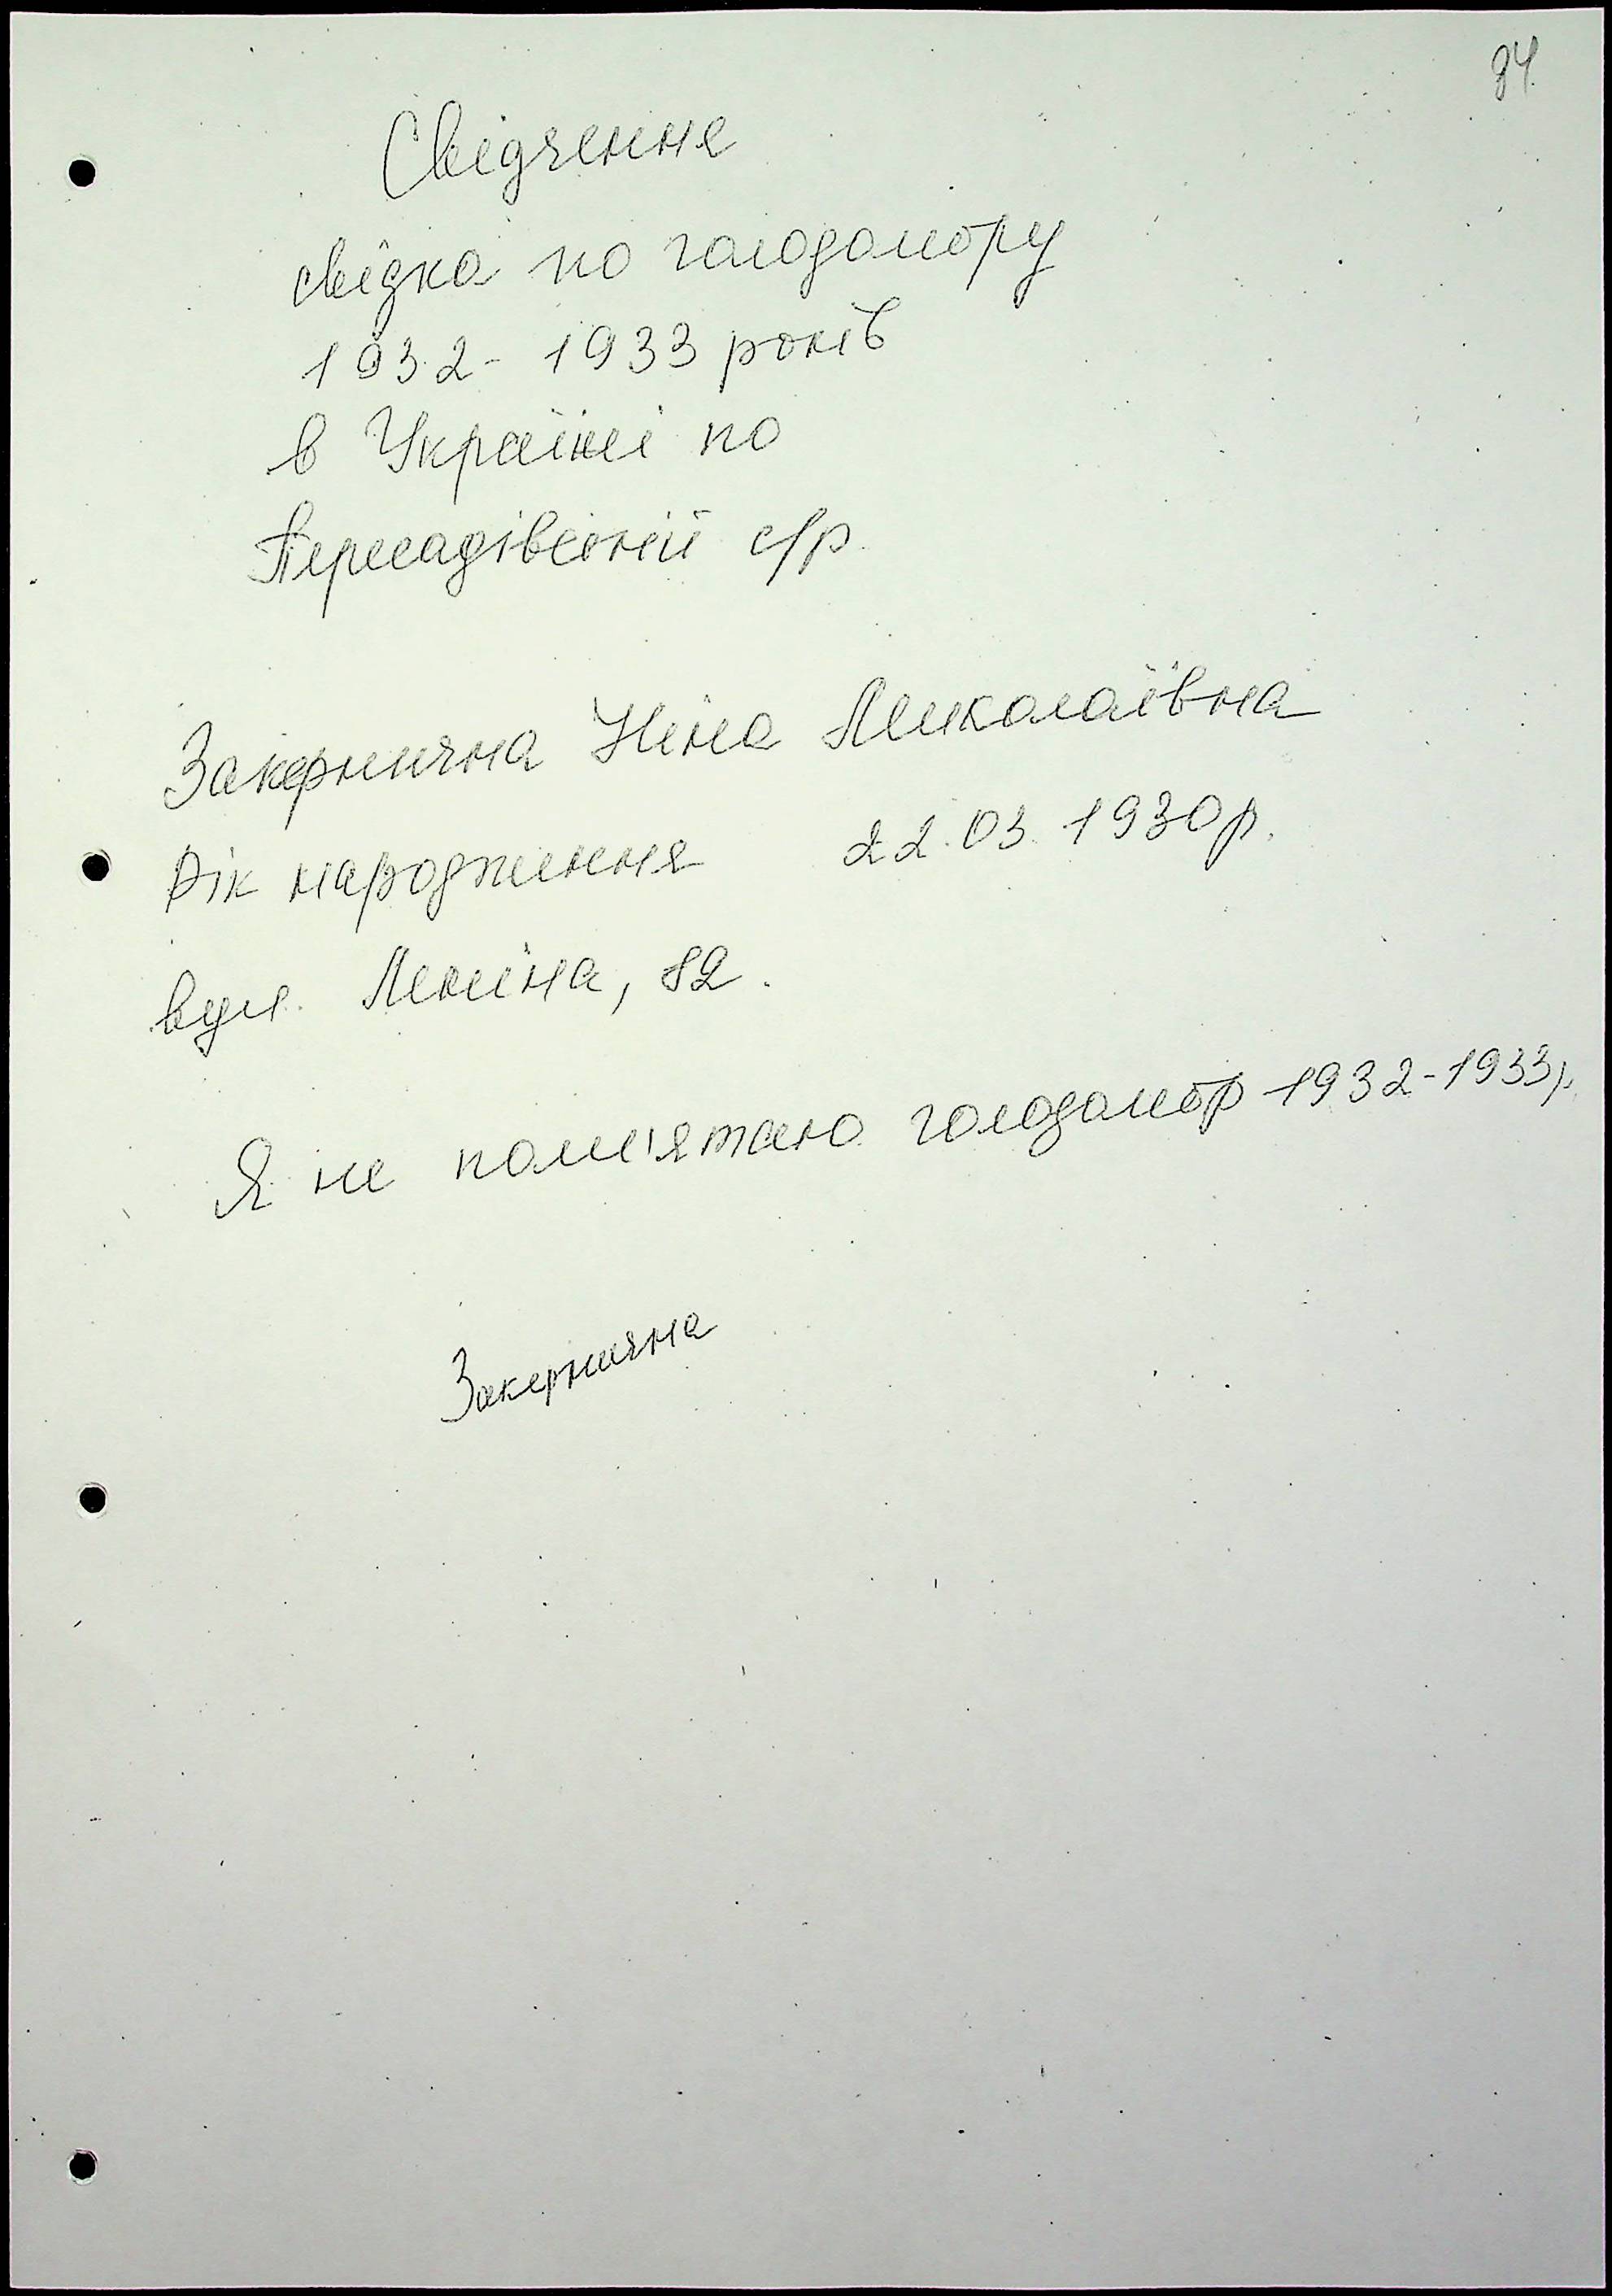 84
Свідчення
свідка по голодомору
1932-1933 років
в Україні по
Пересадівській с/р
Закернична Ніна Миколаївна
рік народження 22.03.1930р.
вул. Леніна, 82.
Я не пам'ятаю голодомор 1932-1933р.
Закернична